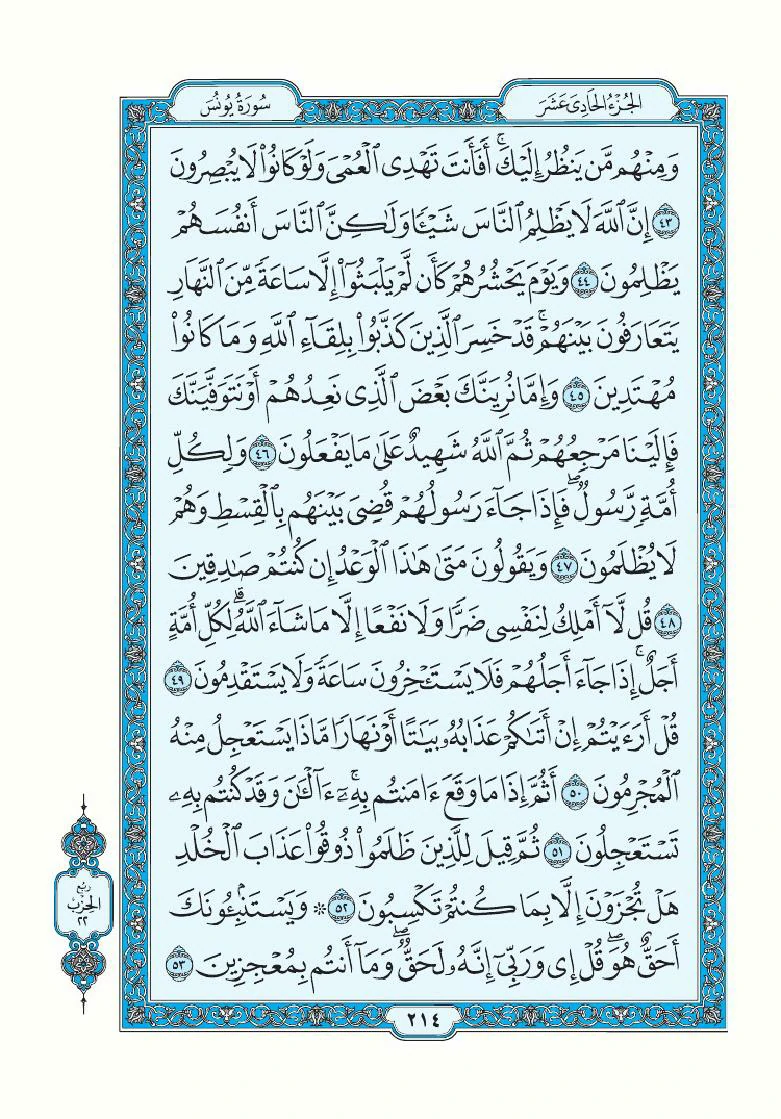 الجُزْءُ الحَادِى عَشَرَ
سُورَةُ يُونُسَ
وَمِنْهُم مَّن يَنظُرُ إِلَيْكَۚ أَفَأَنتَ تَهْدِى ٱلْعُمْىَ وَلَوْ كَانُوا۟ لَا يُبْصِرُونَ
٤٣ إِنَّ ٱللَّهَ لَا يَظْلِمُ ٱلنَّاسَ شَيْـًٔا وَلَٰكِنَّ ٱلنَّاسَ أَنفُسَهُمْ
يَظْلِمُونَ ٤٤ وَيَوْمَ يَحْشُرُهُمْ كَأَن لَّمْ يَلْبَثُوٓا۟ إِلَّا سَاعَةً مِّنَ ٱلنَّهَارِ
يَتَعَارَفُونَ بَيْنَهُمْۚ قَدْ خَسِرَ ٱلَّذِينَ كَذَّبُوا۟ بِلِقَآءِ ٱللَّهِ وَمَا كَانُوا۟
مُهْتَدِينَ ٤٥ وَإِمَّا نُرِيَنَّكَ بَعْضَ ٱلَّذِى نَعِدُهُمْ أَوْ نَتَوَفَّيَنَّكَ
فَإِلَيْنَا مَرْجِعُهُمْ ثُمَّ ٱللَّهُ شَهِيدٌ عَلَىٰ مَا يَفْعَلُونَ ٤٦ وَلِكُلِّ
أُمَّةٍ رَّسُولٌۖ فَإِذَا جَآءَ رَسُولُهُمْ قُضِىَ بَيْنَهُم بِٱلْقِسْطِ وَهُمْ
لَا يُظْلَمُونَ ٤٧ وَيَقُولُونَ مَتَىٰ هَٰذَا ٱلْوَعْدُ إِن كُنتُمْ صَٰدِقِينَ
٤٨ قُل لَّآ أَمْلِكُ لِنَفْسِى ضَرًّا وَلَا نَفْعًا إِلَّا مَا شَآءَ ٱللَّهُۗ لِكُلِّ أُمَّةٍ
أَجَلٌۚ إِذَا جَآءَ أَجَلُهُمْ فَلَا يَسْتَـْٔخِرُونَ سَاعَةً وَلَا يَسْتَقْدِمُونَ ٤٩
قُلْ أَرَءَيْتُمْ إِنْ أَتَىٰكُمْ عَذَابُهُۥ بَيَٰتًا أَوْ نَهَارًا مَّاذَا يَسْتَعْجِلُ مِنْهُ
ٱلْمُجْرِمُونَ ٥٠ أَثُمَّ إِذَا مَا وَقَعَ ءَامَنتُم بِهِۦٓۚ ءَآلْـَٰٔنَ وَقَدْ كُنتُم بِهِۦ
تَسْتَعْجِلُونَ ٥١ ثُمَّ قِيلَ لِلَّذِينَ ظَلَمُوا۟ ذُوقُوا۟ عَذَابَ ٱلْخُلْدِ
هَلْ تُجْزَوْنَ إِلَّا بِمَا كُنتُمْ تَكْسِبُونَ ٥٢ ۞ وَيَسْتَنۢبِـُٔونَكَ
أَحَقٌّ هُوَۖ قُلْ إِى وَرَبِّىٓ إِنَّهُۥ لَحَقٌّۖ وَمَآ أَنتُم بِمُعْجِزِينَ ٥٣
رُبع
الحِزْب
٢٢
٢١٤